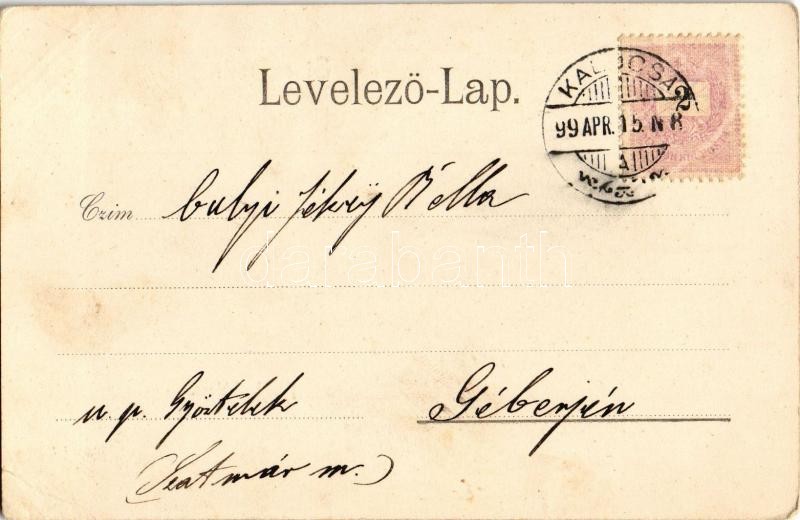 Levelező-Lap.
KALOCSA
99 APR. 15. N 8
2
Czim
Bella
Géberjén
u. p. Győrtelek
(Szatmár m.)
darabanth